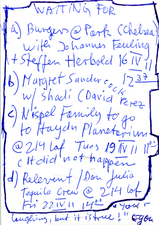 WAITING FOR
a) Burgers @ Park (Chelsea)
with Johannes Feuling
+ Steffen Herbold 16 IV 11
b) Margret Sander 12 37
w/ Shadi (David Perez
c) Nispel Family to go
to Haydn Planetarium
@ 214 Laf Tues 19 IV 11
(it did not happen
d) Relevent / Don Julio
Tequila Crew @ 214 Laf
Fri 22 IV 11 14
laughing, but it is true!